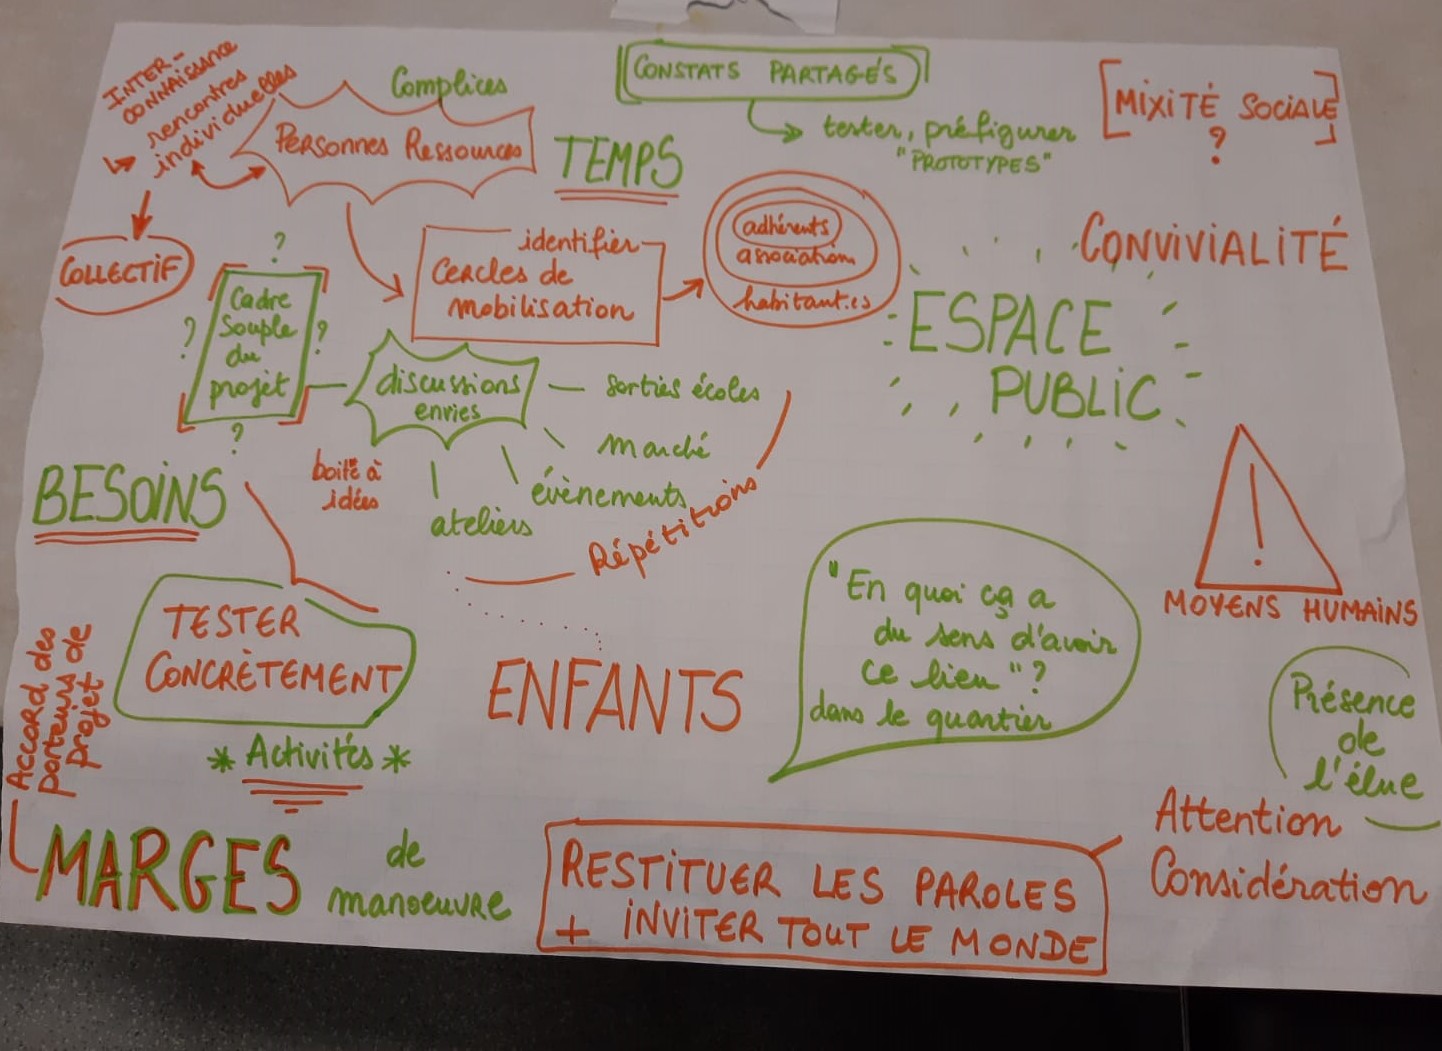 INTER-
CONNAISSANCE
rencontres
individuelles
Complices
Personnes Ressources
CONSTATS PARTAGÉS
tester, préfigurer
"PROTOTYPES"
[MIXITÉ SOCIALE]
?
TEMPS
COLLECTIF
identifier
Cercles de
mobilisation
adhérents
association
habitant.es
CONVIVIALITÉ
ESPACE
PUBLIC
?
?
?
?
Cadre
Souple
du
projet
discussions
envies
sorties écoles
marché
évènements
ateliers
boite à
idées
Répétitions
BESOINS
!
MOYENS HUMAINS
TESTER
CONCRÈTEMENT
* Activités *
ENFANTS
"En quoi ça a
du sens d'avoir
ce lieu" ?
dans le quartier
Présence
de
l'élue
Accord des
porteurs de
projet
MARGES de
manoeuvre
RESTITUER LES PAROLES
+ INVITER TOUT LE MONDE
Attention
Considération